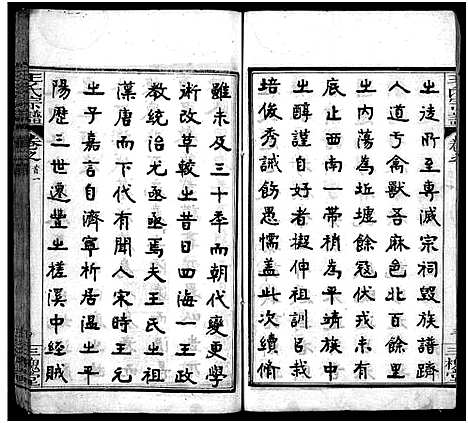 㞢徒所至專滅宗祠毁族譜躋
人道亏禽獸吾麻邑北百餘里
㞢内蕩為坵墟餘冦伏戎未有
底止西南一帶稍為平靖族
㞢醇謹自好者擬伸祖訓㠯栽
培俊秀誡飭愚懦蓋此次續脩
雖未及三十年而朝代變更學
術改革較㞢四海一㞢王政
教統治尤亟亟焉夫王氏㞢祖
漢唐而下代有聞人宋時王元
㞢子嘉言自濟寧析居溫㞢平
陽歷三世遷豐㞢槎溪中經賊
王氏宗譜
卷之首
三槐堂